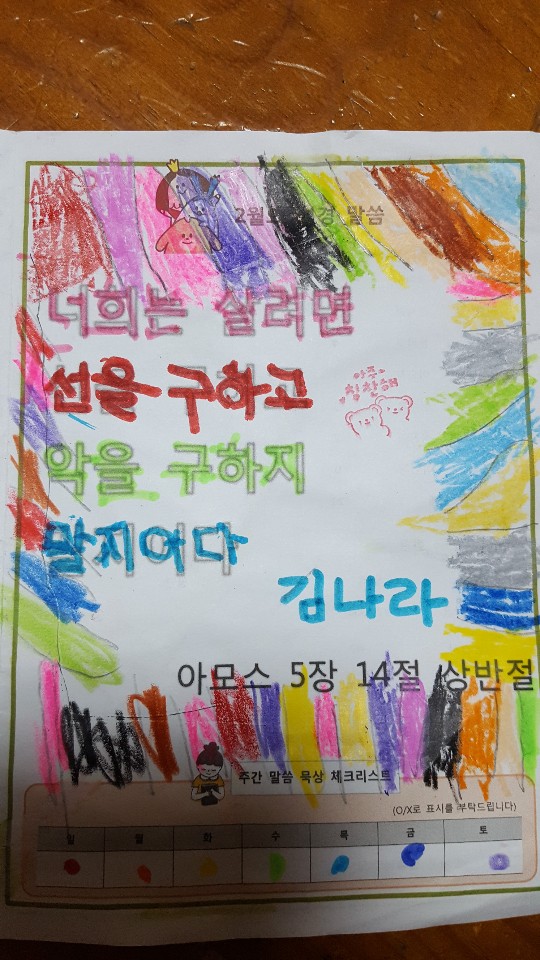 2월 경 말씀
너희는 살려면
선을 구하고
아주
칭찬해
악을 구하지
말지어다
김나라
아모스 5장 14절 상반절
주간 말씀 묵상 체크리스트
(O/X로 표시를 부탁드립니다)
일 월 화 수 목 금 토